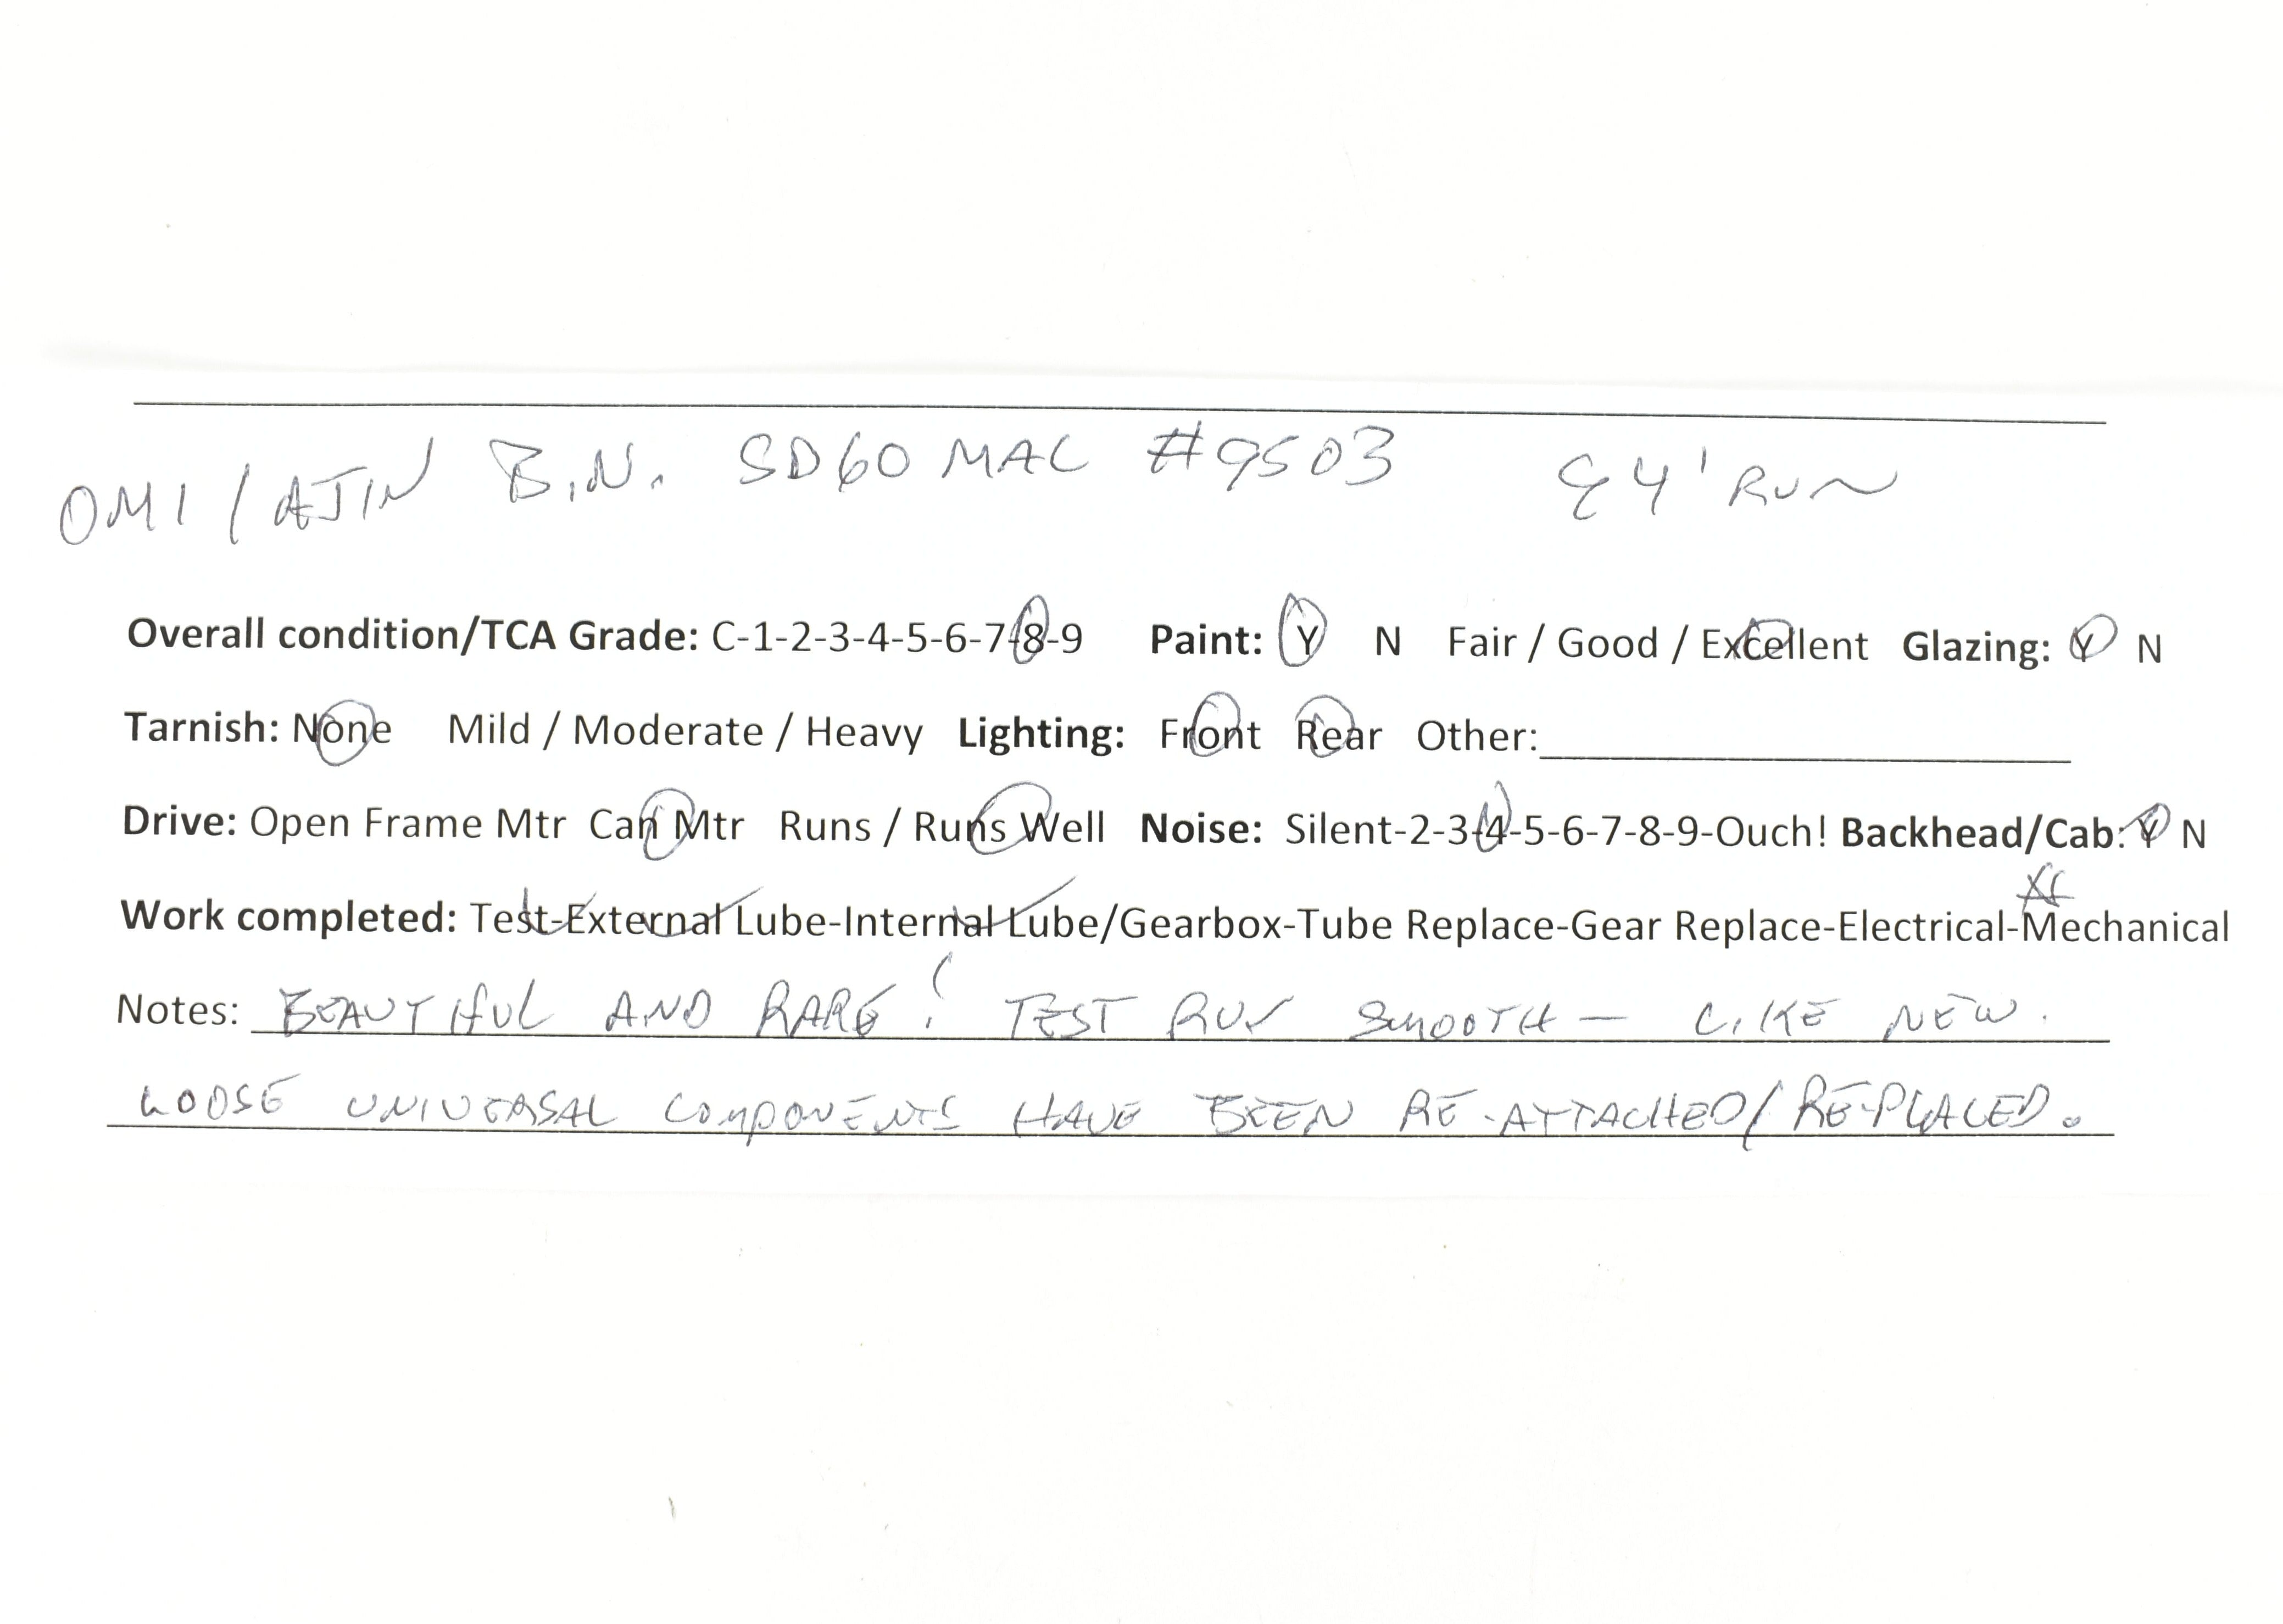 OMI / AJIN B.N. SD60 MAC #9503 & 4' RUN
Overall condition/TCA Grade: C-1-2-3-4-5-6-7-8-9 Paint: Y N Fair / Good / Excellent Glazing: Y N
Tarnish: None Mild / Moderate / Heavy Lighting: Front Rear Other:
Drive: Open Frame Mtr Can Mtr Runs / Runs Well Noise: Silent-2-3-4-5-6-7-8-9-Ouch! Backhead/Cab: Y N
Work completed: Test-External Lube-Internal Lube/Gearbox-Tube Replace-Gear Replace-Electrical-Mechanical
Notes: BEAUTIFUL AND RARE! TEST RUN SMOOTH - LIKE NEW.
LOOSE UNIVERSAL COMPONENTS HAVE BEEN RE-ATTACHED/RE-PLACED.